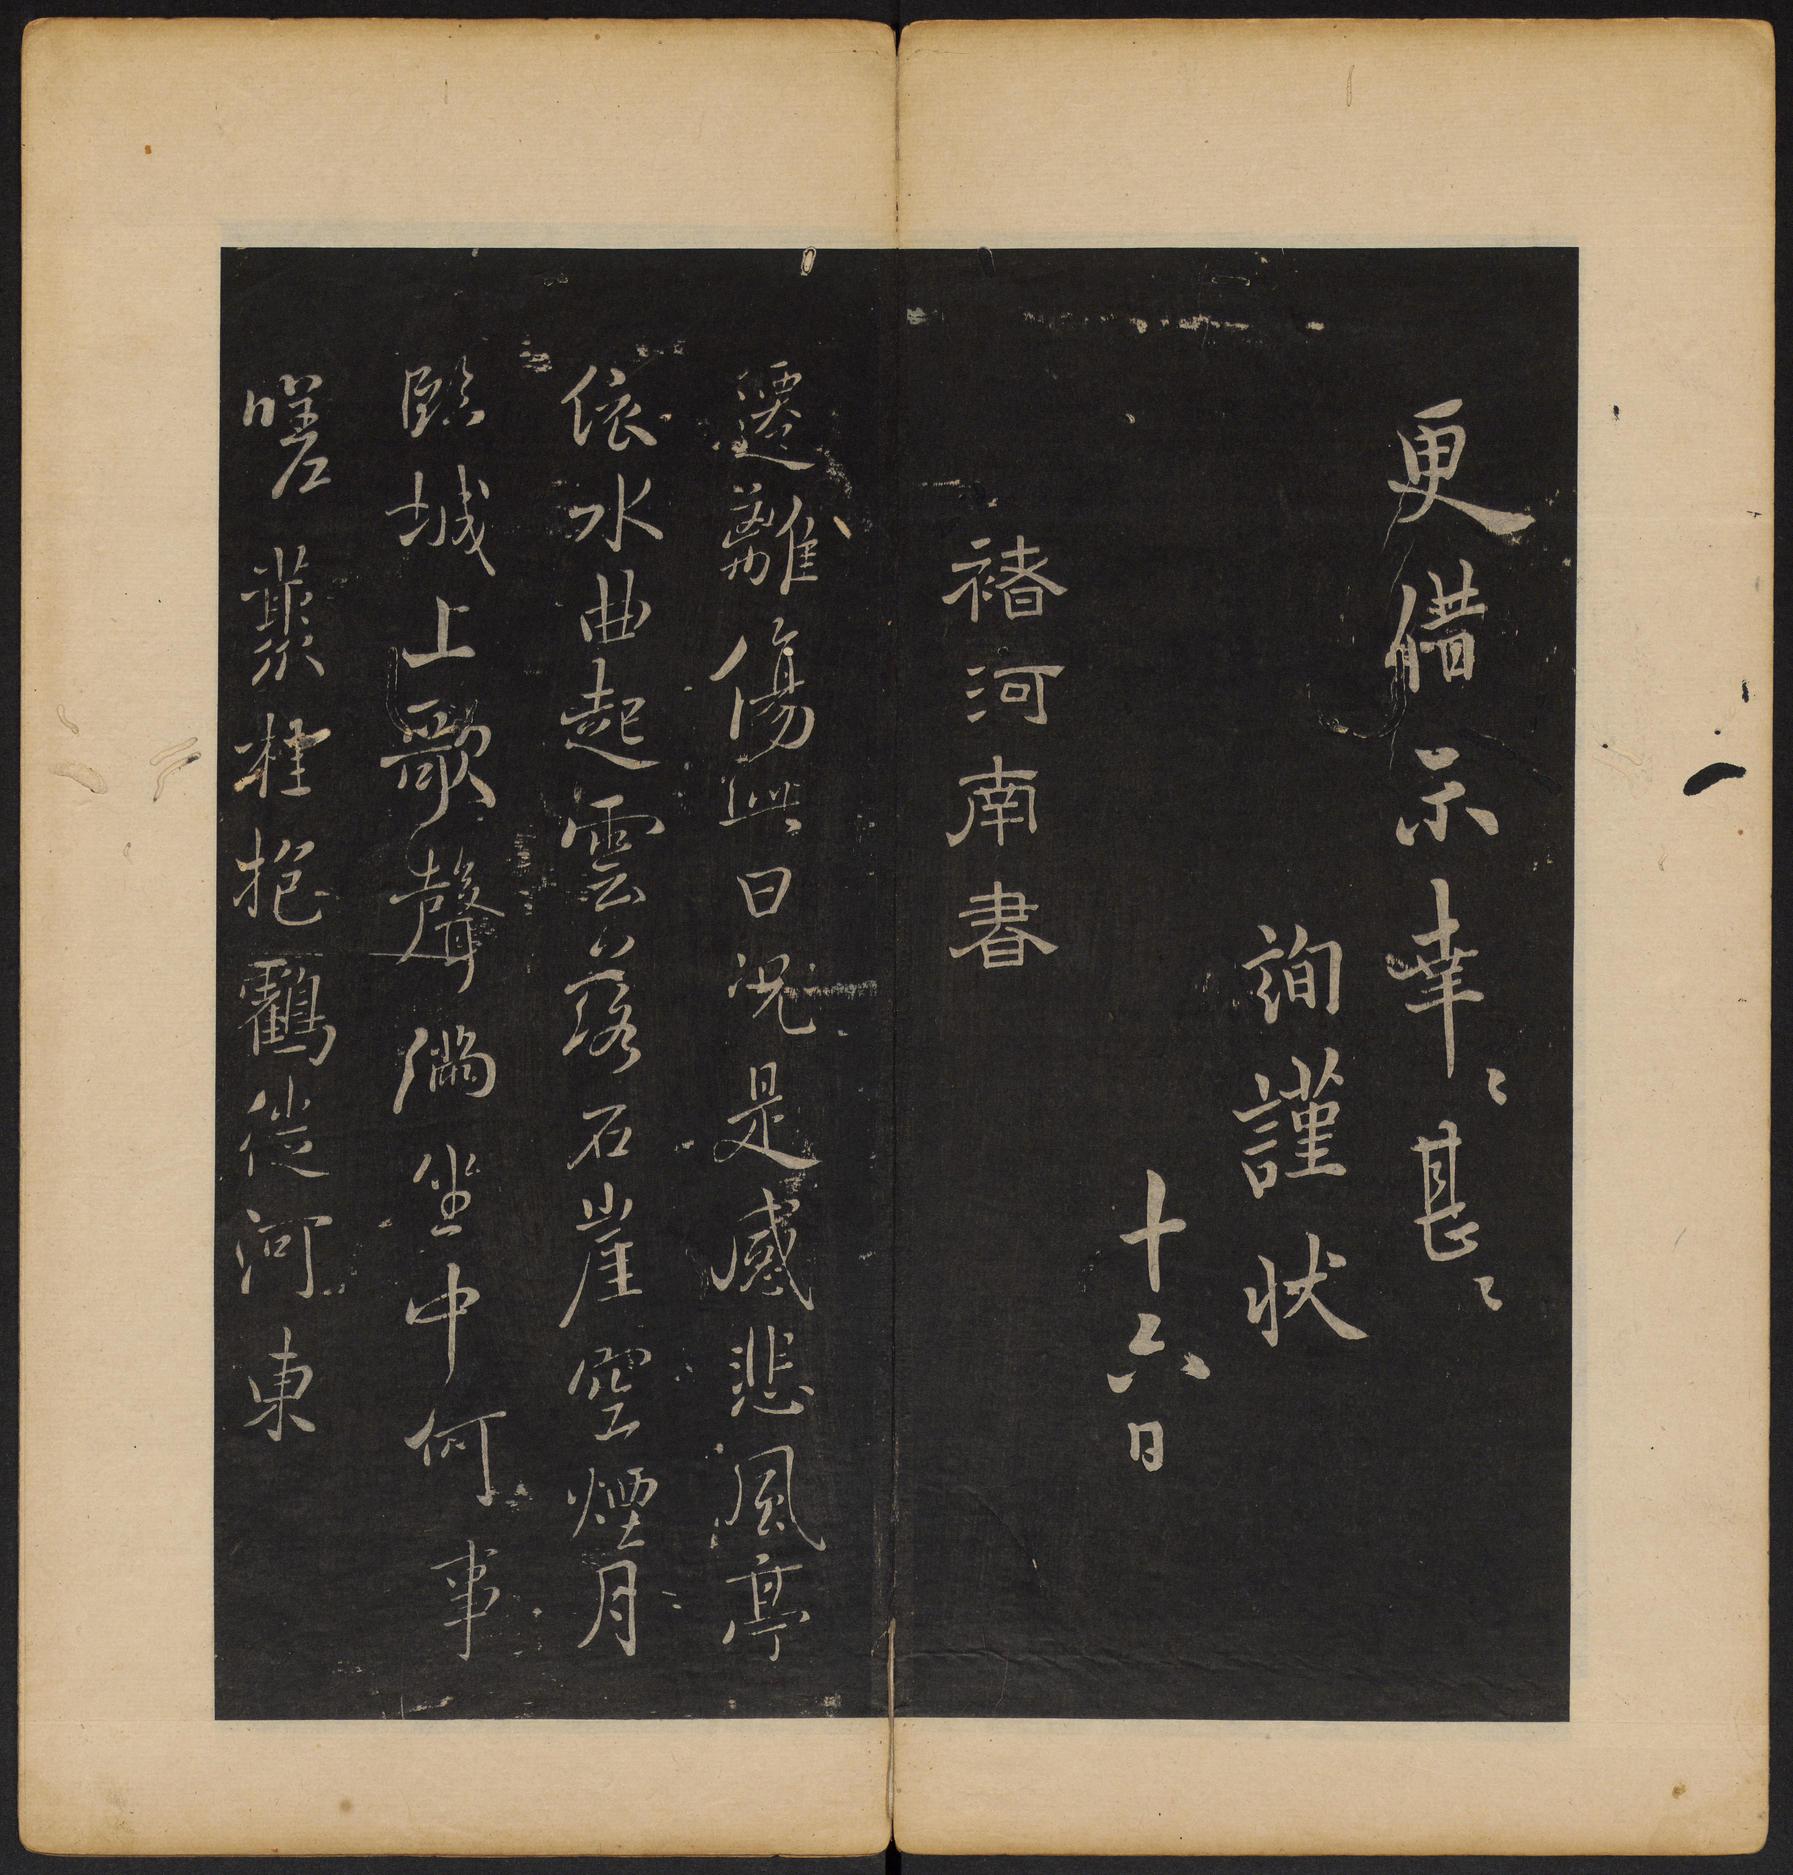 更借示幸〻甚〻
詢謹狀
十六日
褚河南書
遷離傷與日況是感悲風亭
依水曲起雲落石崖空煙月
臨城上歌聲徧坐中何事
嗟叢桂抱鸖從河東